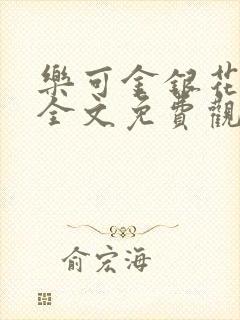 樂可金銀花
全文免費觀
俞宏海